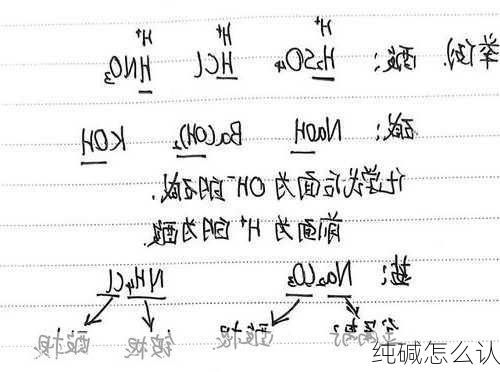 H⁺ H⁺ H⁺
举例. 酸: H₂SO₄ HCl HNO₃
碱: NaOH Ba(OH)₂ KOH
化学式后面为OH⁻的为碱.
前面为H⁺的为酸
盐: Na₂CO₃ NH₄Cl
酸根 铵根 酸根
纯碱怎么认